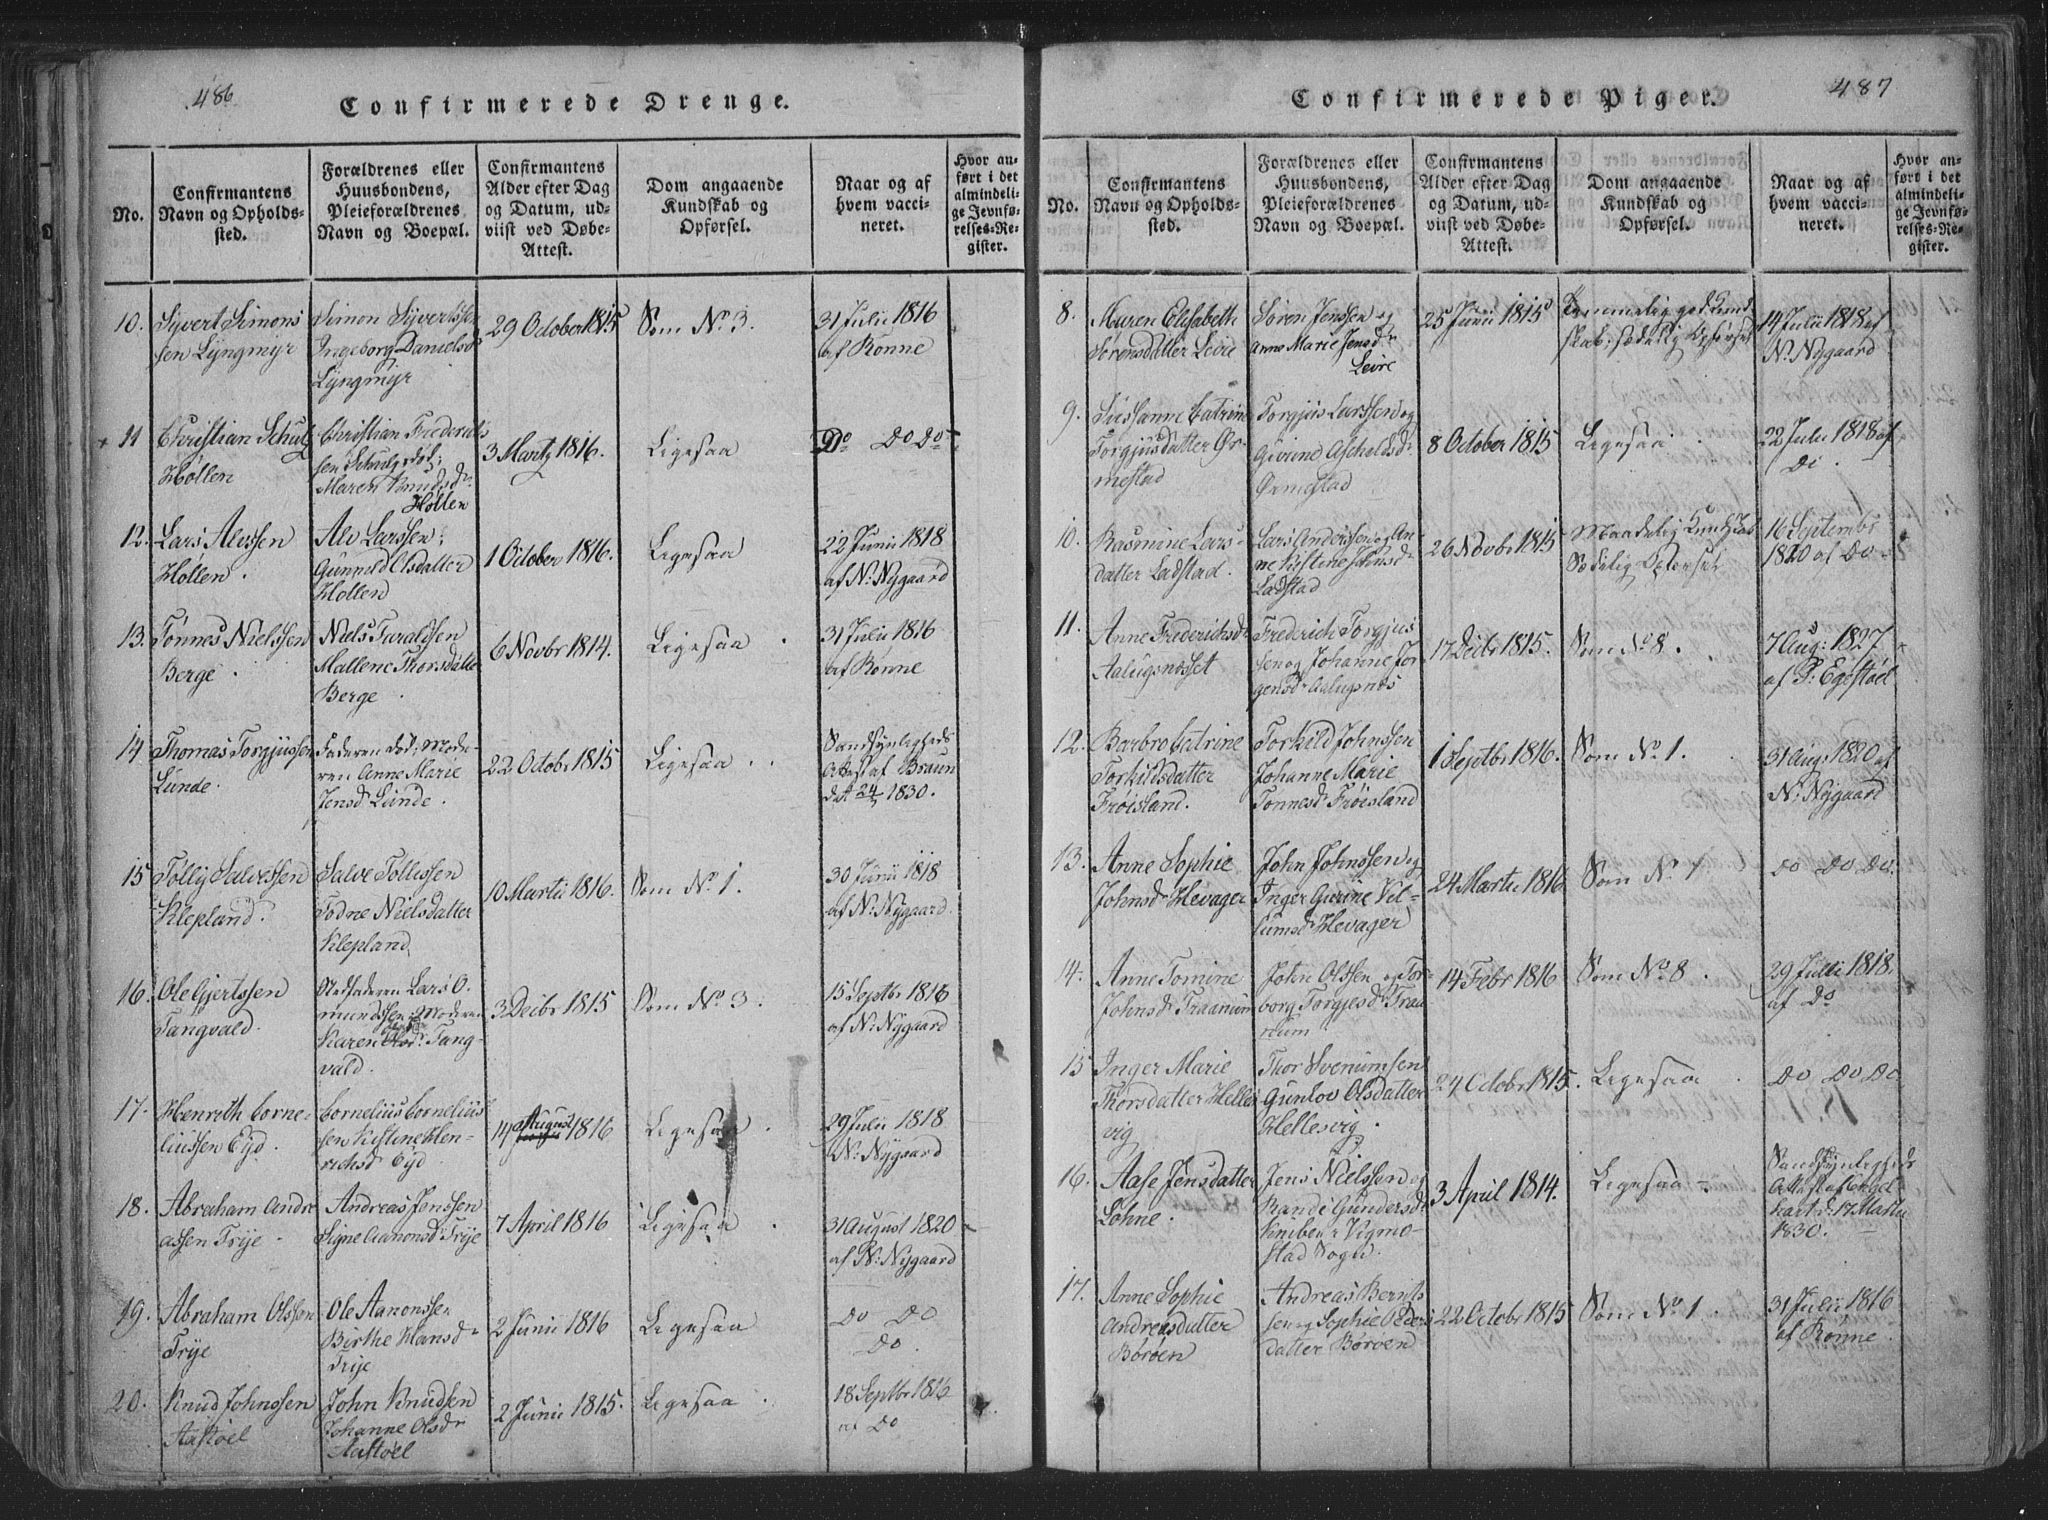 486
Confirmerede Drenge.
No.
Confirmantens
Navn og Opholds-
sted.
Forældrenes eller
Huusbondens,
Pleieforældrenes
Navn og Boepæl.
Confirmantens
Alder efter Dag
og Datum, ud-
viist ved Døbe-
Attest.
Dom angaaende
Kundskab og
Opførsel.
Naar og af
hvem vacci-
neret.
Hvor an-
ført i det
almindeli-
ge Jevnfø-
relses-Re-
gister.
10.
Syvert Simons
sen Lyngmyr
Simon Syvertssen
Ingeborg Danielsd
Lyngmyr
29 October 1815
Som No 3.
31 Julii 1816
af Rønne
11
Christian Schulz
Høllen
Christian Frederichs
sen Schulz død;
Maren Knudsdr
Høllen
3 Martz 1816.
Ligesaa
Do Do Do
12.
Lars Alvssen
Høllen.
Alv Larssen;
Gunnild Olsdatter
Høllen
1 October 1816.
Ligesaa
22 Junii 1818
af N: Nygaard
13.
Tønnes Nielssen
Berge.
Niels Taraldsen
Mallene Thorsdatte
Berge.
6 Novbr 1814.
Ligesaa.
31 Julii 1816
af Rønne
14
Thomas Torgjussen
Lunde.
Faderen død; Mode-
ren Anne Marie
Jensd Lunde.
22 Octobr 1815
Ligesaa..
Sandsynligheds
Attest af Braun
dat 24 1830.
15
Tølliv Salvessen
Klepland.
Salve Tollissen
Todne Nielsdatter
Klepland,
10 Martii 1816.
Som No 1.
30 Junii 1818
af N: Nygaard.
16.
Ole Gjertssen
Tangvald.
Stedfaderen Lars O-
mundssen; Moderen
Karen Tang-
vald.
3 Decbr 1815
Som No 3.
15 Septbr 1816
af N: Nygaard
17.
Henrich Corne-
liussen Eyd.
Cornelius Cornelius
sen Kistine Hen-
richsd Eyd.
14 August 1816
Ligesaa.
29 Julii 1818
N: Nygaard
18.
Abraham Andre
assen Trye.
Andreas Jenssen
Signe Aanonsd Trye
7 April 1816
Ligesaa.
31 August 1820
af N: Nygaard
19.
Abraham Olssen
Trye
Ole Aanonssen
Birthe Hansdr
Trye
2 Junii 1816
Ligesaa
Do Do
Do.
20.
Knud Johnssen
Aastøel
John Knudsen
Johanne Olsdr
Aastøel
2 Junii 1815.
Ligesaa.
18 Septbr 1816
af Do
487
Confirmerede Piger.
No.
Confirmantens
Navn og Opholds-
sted.
Forældrenes eller
Huusbondens,
Pleieforældrenes
Navn og Boepæl.
Confirmantens
Alder efter Dag
og Datum, ud-
viist ved Døbe-
Attest.
Dom angaaende
Kundskab og
Opførsel.
Naar og af
hvem vacci-
neret.
Hvor an-
ført i det
almindeli-
ge Jevnfø-
relses-Re-
gister.
8.
Maren Elisabeth
Sørensdatter Leire
Søren Jenssen og
Anne Marie Jensdr
Leire
25 Junii 1815
Temmelig god Kund
skab; sædelig Opførsel
14 Julii 1818 af
N. Nygaard
9.
Susanne Catrine
Torgjusdatter Ør-
mestad
Torgjus Larssen og
Givrine Ascholdsdr
Ørmestad
8 October 1815
Ligesaa.
22 Julii 1818 af
Do.
10.
Rasmine Lars-
datter Ladstad.
Lars Anderssen og An-
ne Kistine Jensdr
Ladstad
26 Novbr 1815
Maadelig Kundskab
Sædelig Opførsel
16 Septembr
1820 af Do
11.
Anne Frederichsd
Aalugsnæsset
Frederich Torgjus
sen og Johanne Jor
gensdr Aalugsnæs
17 Decbr 1815.
Som No 8.
7 Aug: 1827
af P: Egestøel
12.
Barbro Catrine
Torkildsdatter
Frøisland.
Torkild Johnssen
Johanne Marie
Tønnesd Frøisland
1 Septbr 1816.
Som No 1.
31 Aug: 1820 af
N: Nygaard
13.
Anne Sophie
Johnsd Hevager
John Johnssen og
Inger Gurine Vil-
lumsd Hevager
24 Martii 1816
Som No 1
Do Do Do.
14.
Anne Tomine
Johnsd Traanum
John Olssen og Tor-
borg Torgjesd Traa
num
14 Febr 1816
Som No 8.
29 Julii 1818.
af Do
15
Inger Marie
Thorsdatter Helles
vig
Thor Svenumsen
Gunlov Olsdatter
Hellesvig.
24 Octobr 1815.
Ligesaa.
Do Do Do
16.
Aase Jensdatter
Løhne.
Jens Nielssen og
Rande Gundersdr
Kniben i Vigmo-
stad Sogn.
3 April 1814.
Ligesaa
Sandsynligheds
Attest af Engel
hart d: 17 Martii
1830.
17.
Anne Sophie
Andreasdatter
Børøen
Andreas Bernts
sen og Sophie Peders
datter Børøen
22 Octobr 1815
Som No 1.
31 Julii 1816
af Rønne